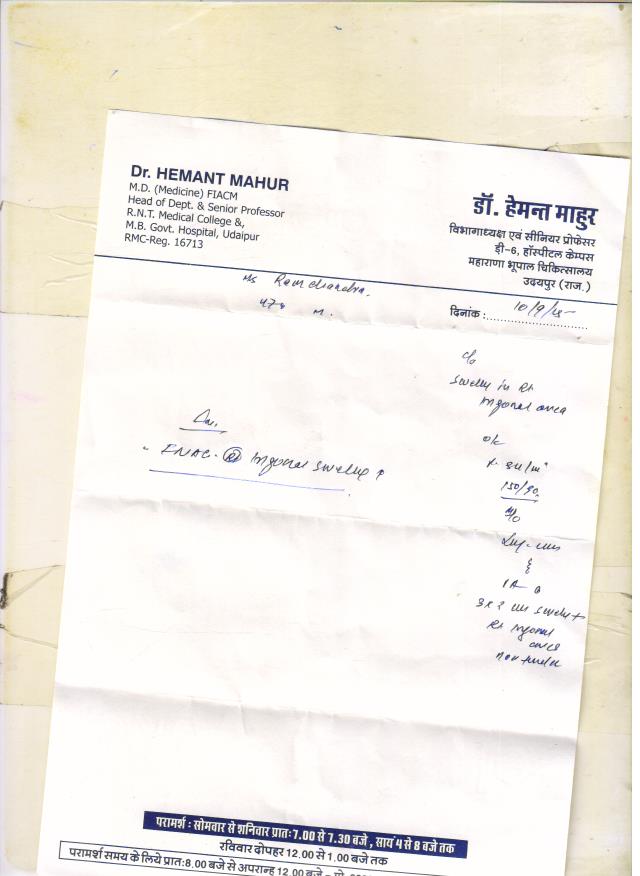 Dr. HEMANT MAHUR
M.D. (Medicine) FIACM
Head of Dept. & Senior Professor
R.N.T. Medical College &,
M.B. Govt. Hospital, Udaipur
RMC-Reg. 16713
डॉ. हेमन्त माहुर
विभागाध्यक्ष एवं सीनियर प्रोफेसर
डी-6, हॉस्पीटल केम्पस
महाराणा भूपाल चिकित्सालय
उदयपुर (राज.)
Ramchandra.
47 M.
दिनांक : 10/9/
c/o
Swelling in Rt
Inguinal area
O/E
150/90
3x2 cm swelling +
Rt Inguinal
area
non tender
FNAC - Rt Inguinal swelling
परामर्श : सोमवार से शनिवार प्रातः 7.00 से 7.30 बजे , सायं 4 से 8 बजे तक
रविवार दोपहर 12.00 से 1.00 बजे तक
परामर्श समय के लिये प्रातः 8.00 बजे से अपरान्ह 12.00 बजे -